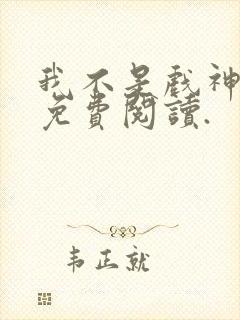 我不是戏神
免費閱讀.
韦正就